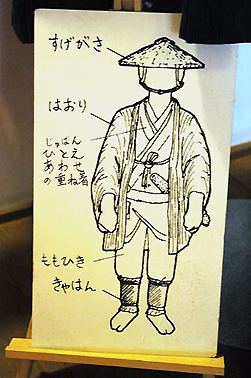 すげがさ
はおり
じゅばん
ひとえ
あわせ
の重ね着
ももひき
きゃはん